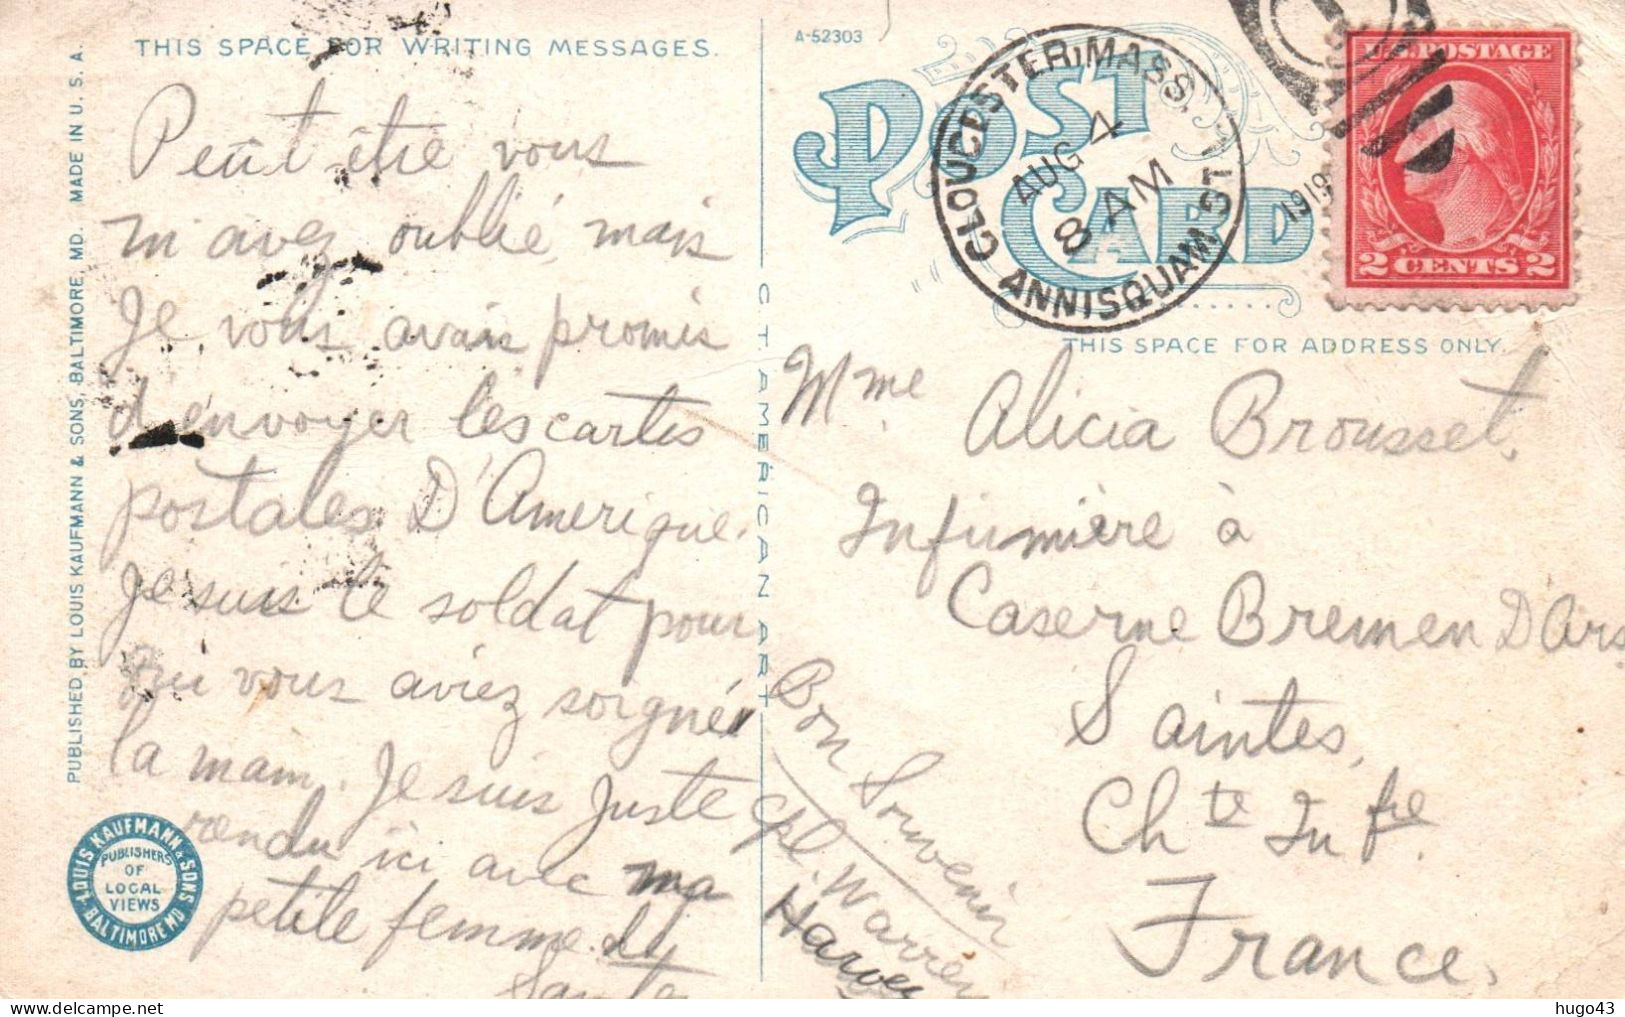 THIS SPACE FOR WRITING MESSAGES.
Peut être vous
m'avez oublié, mais
Je vous avais promis
d'envoyer les cartes
postales D'Amerique.
Je suis le soldat pour
qui vous aviez soigné
la main. Je suis juste
rendu ici avec ma
petite femme.
PUBLISHED BY LOUIS KAUFMANN & SONS, BALTIMORE, MD. MADE IN U. S. A.
LOUIS KAUFMANN & SONS
BALTIMORE MD
PUBLISHERS
OF
LOCAL
VIEWS
C. T. AMERICAN ART
A-52303
POST
CARD
GLOUCESTER, MASS.
AUG 4
8 AM
ANNISQUAM
1919
U.S. POSTAGE
2 CENTS 2
THIS SPACE FOR ADDRESS ONLY.
Mme Alicia Brousset,
Infirmière à
Caserne Bremen D'Ars
Saintes,
Chte Infre.
France.
Bon Souvenir
Cpl. Warren
Harvey
hugo43